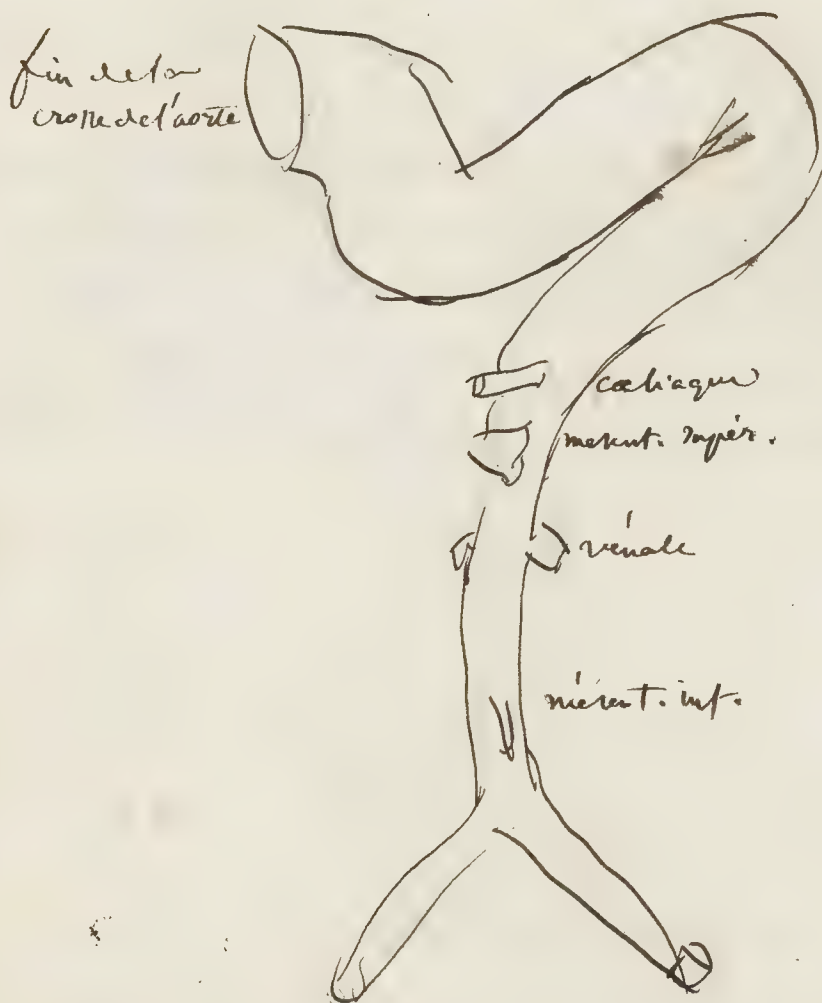 fin de la
crosse de l'aorte
cœliaque
mesent. supér.
rénale
mésent. inf.